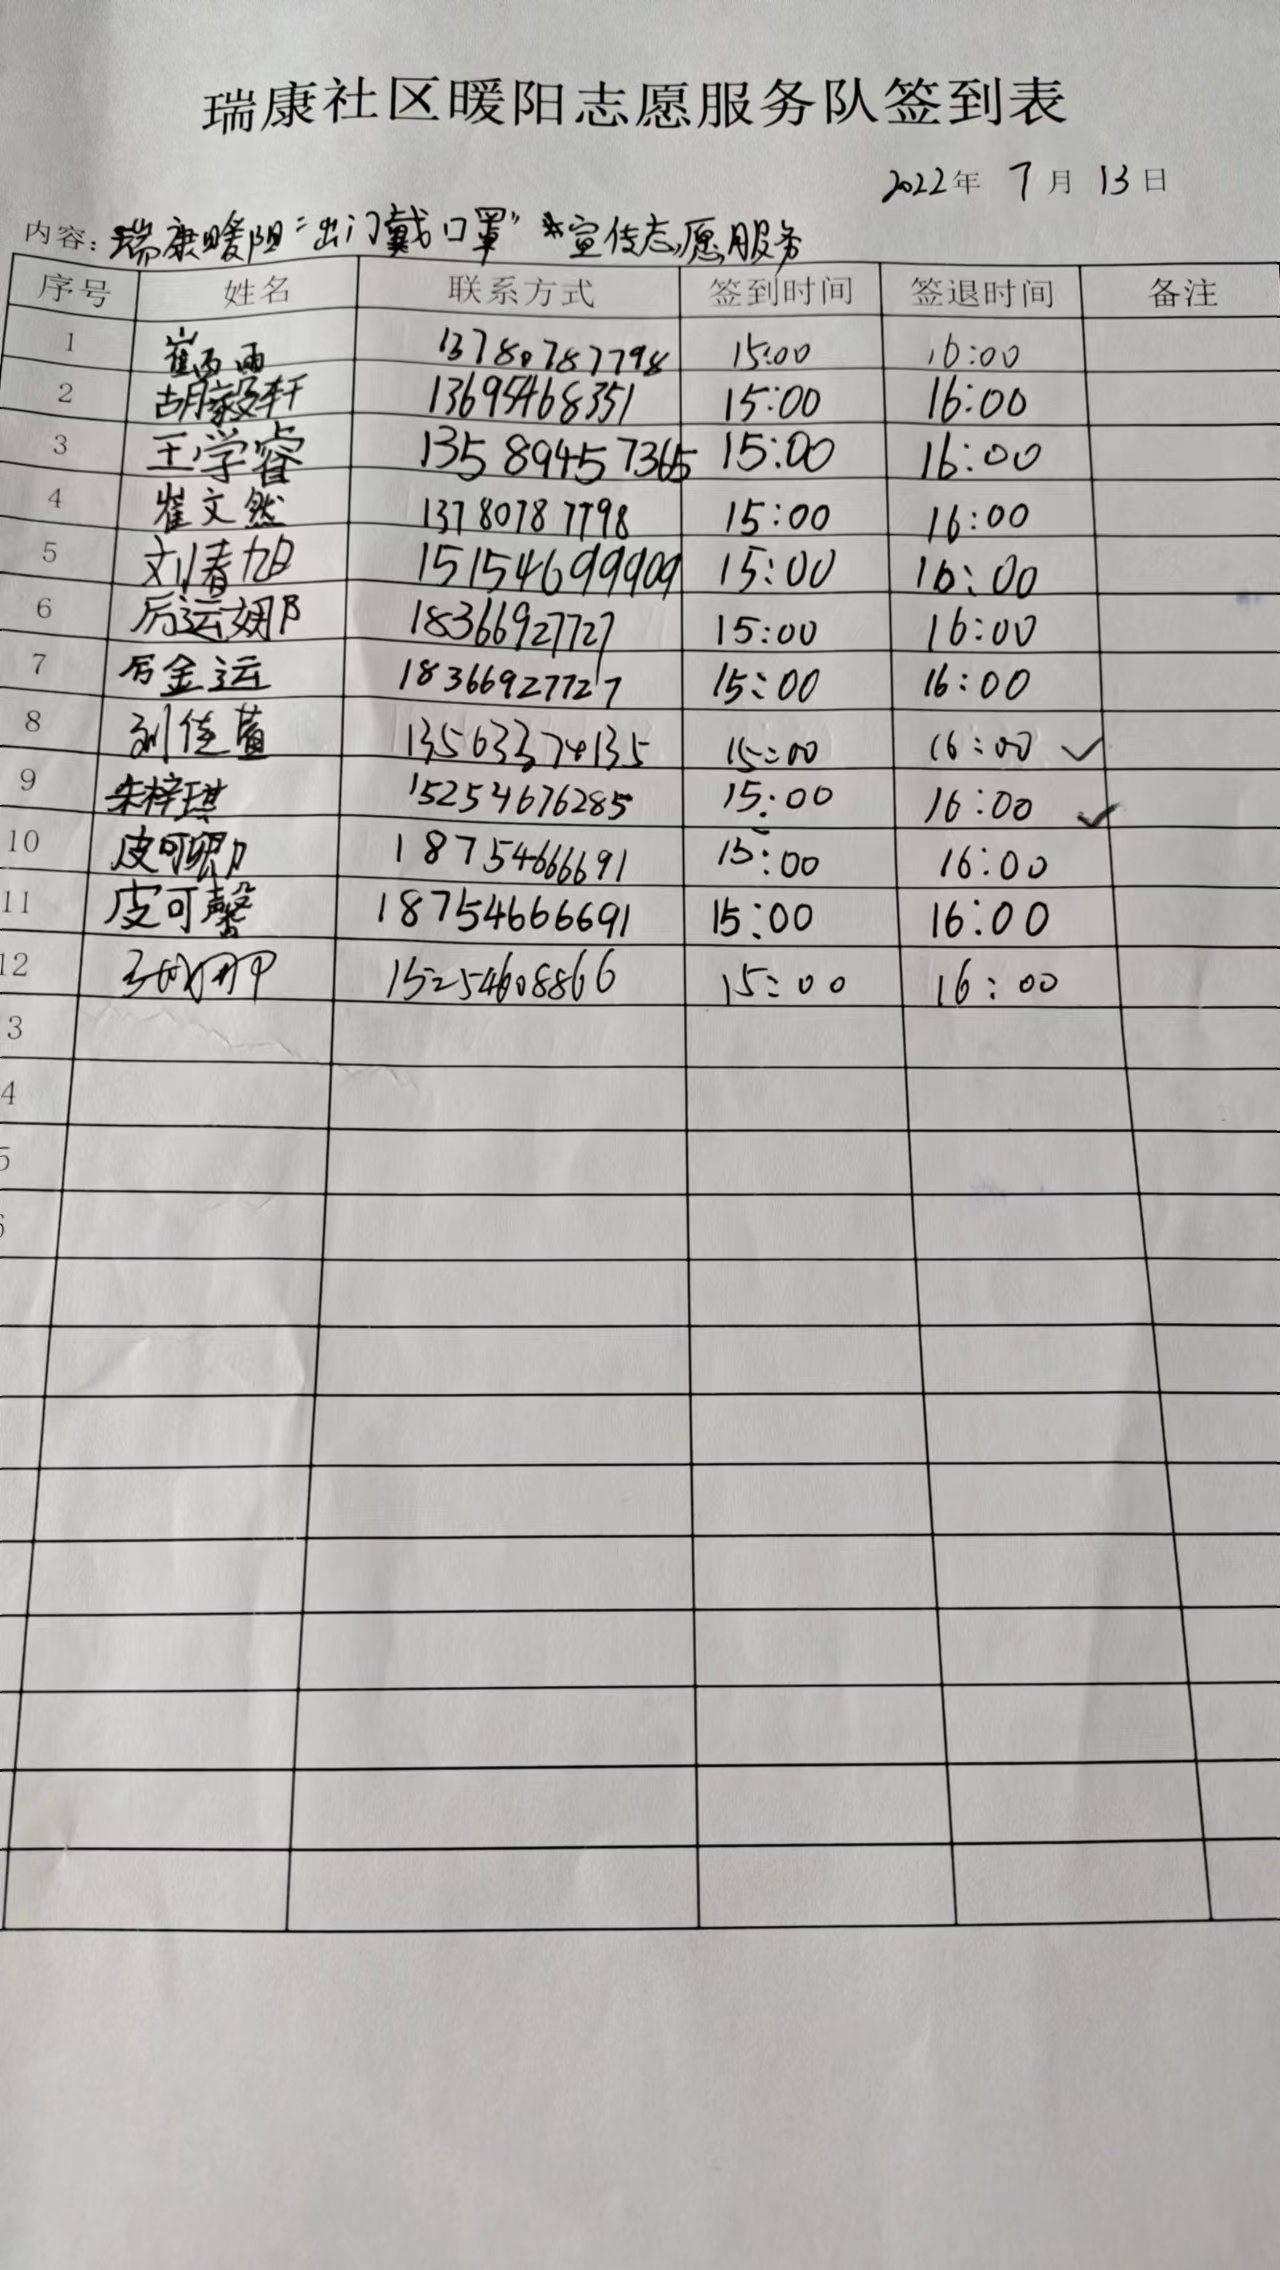 瑞康社区暖阳志愿服务队签到表
2022年 7月 13日
内容: 瑞康暖阳"出门戴口罩"宣传志愿服务
序号 姓名 联系方式 签到时间 签退时间 备注
1 崔雨 13780787798 15:00 16:00
2 胡毅轩 13695468351 15:00 16:00
3 王学睿 13589457365 15:00 16:00
4 崔文然 13780787798 15:00 16:00
5 刘春旭 15154699909 15:00 16:00
6 厉运娜 18366927727 15:00 16:00
7 厉金运 18366927727 15:00 16:00
8 刘佳萱 13563374135 15:00 16:00 ✓
9 朱梓琪 15254676285 15:00 16:00 ✓
10 皮可 18754666691 15:00 16:00
11 皮可馨 18754666691 15:00 16:00
12 15254608866 15:00 16:00
3
4
5
6